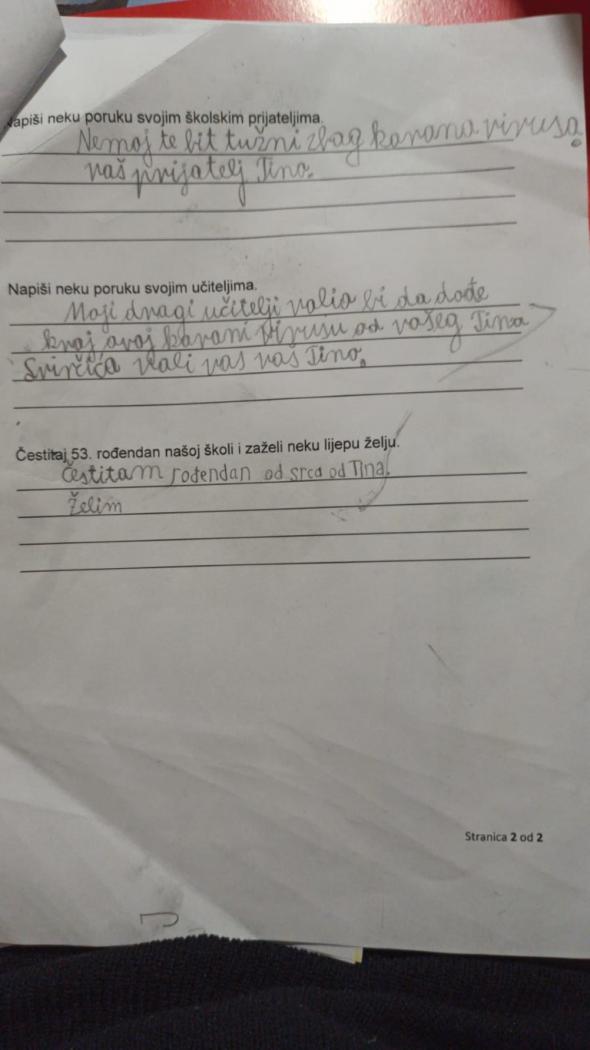 Napiši neku poruku svojim školskim prijateljima.
Nemoj te bit tužni zbag karana virusa.
vaš prijatelj Tino.
Napiši neku poruku svojim učiteljima.
Moji dragi učitelji valia bi da dođe
kraj ovoj karani virusu od vašeg Tina
Svirčića vali vas vaš Tino.
Čestitaj 53. rođendan našoj školi i zaželi neku lijepu želju.
Čestitam rođendan od srca od Tina.
Želim
Stranica 2 od 2